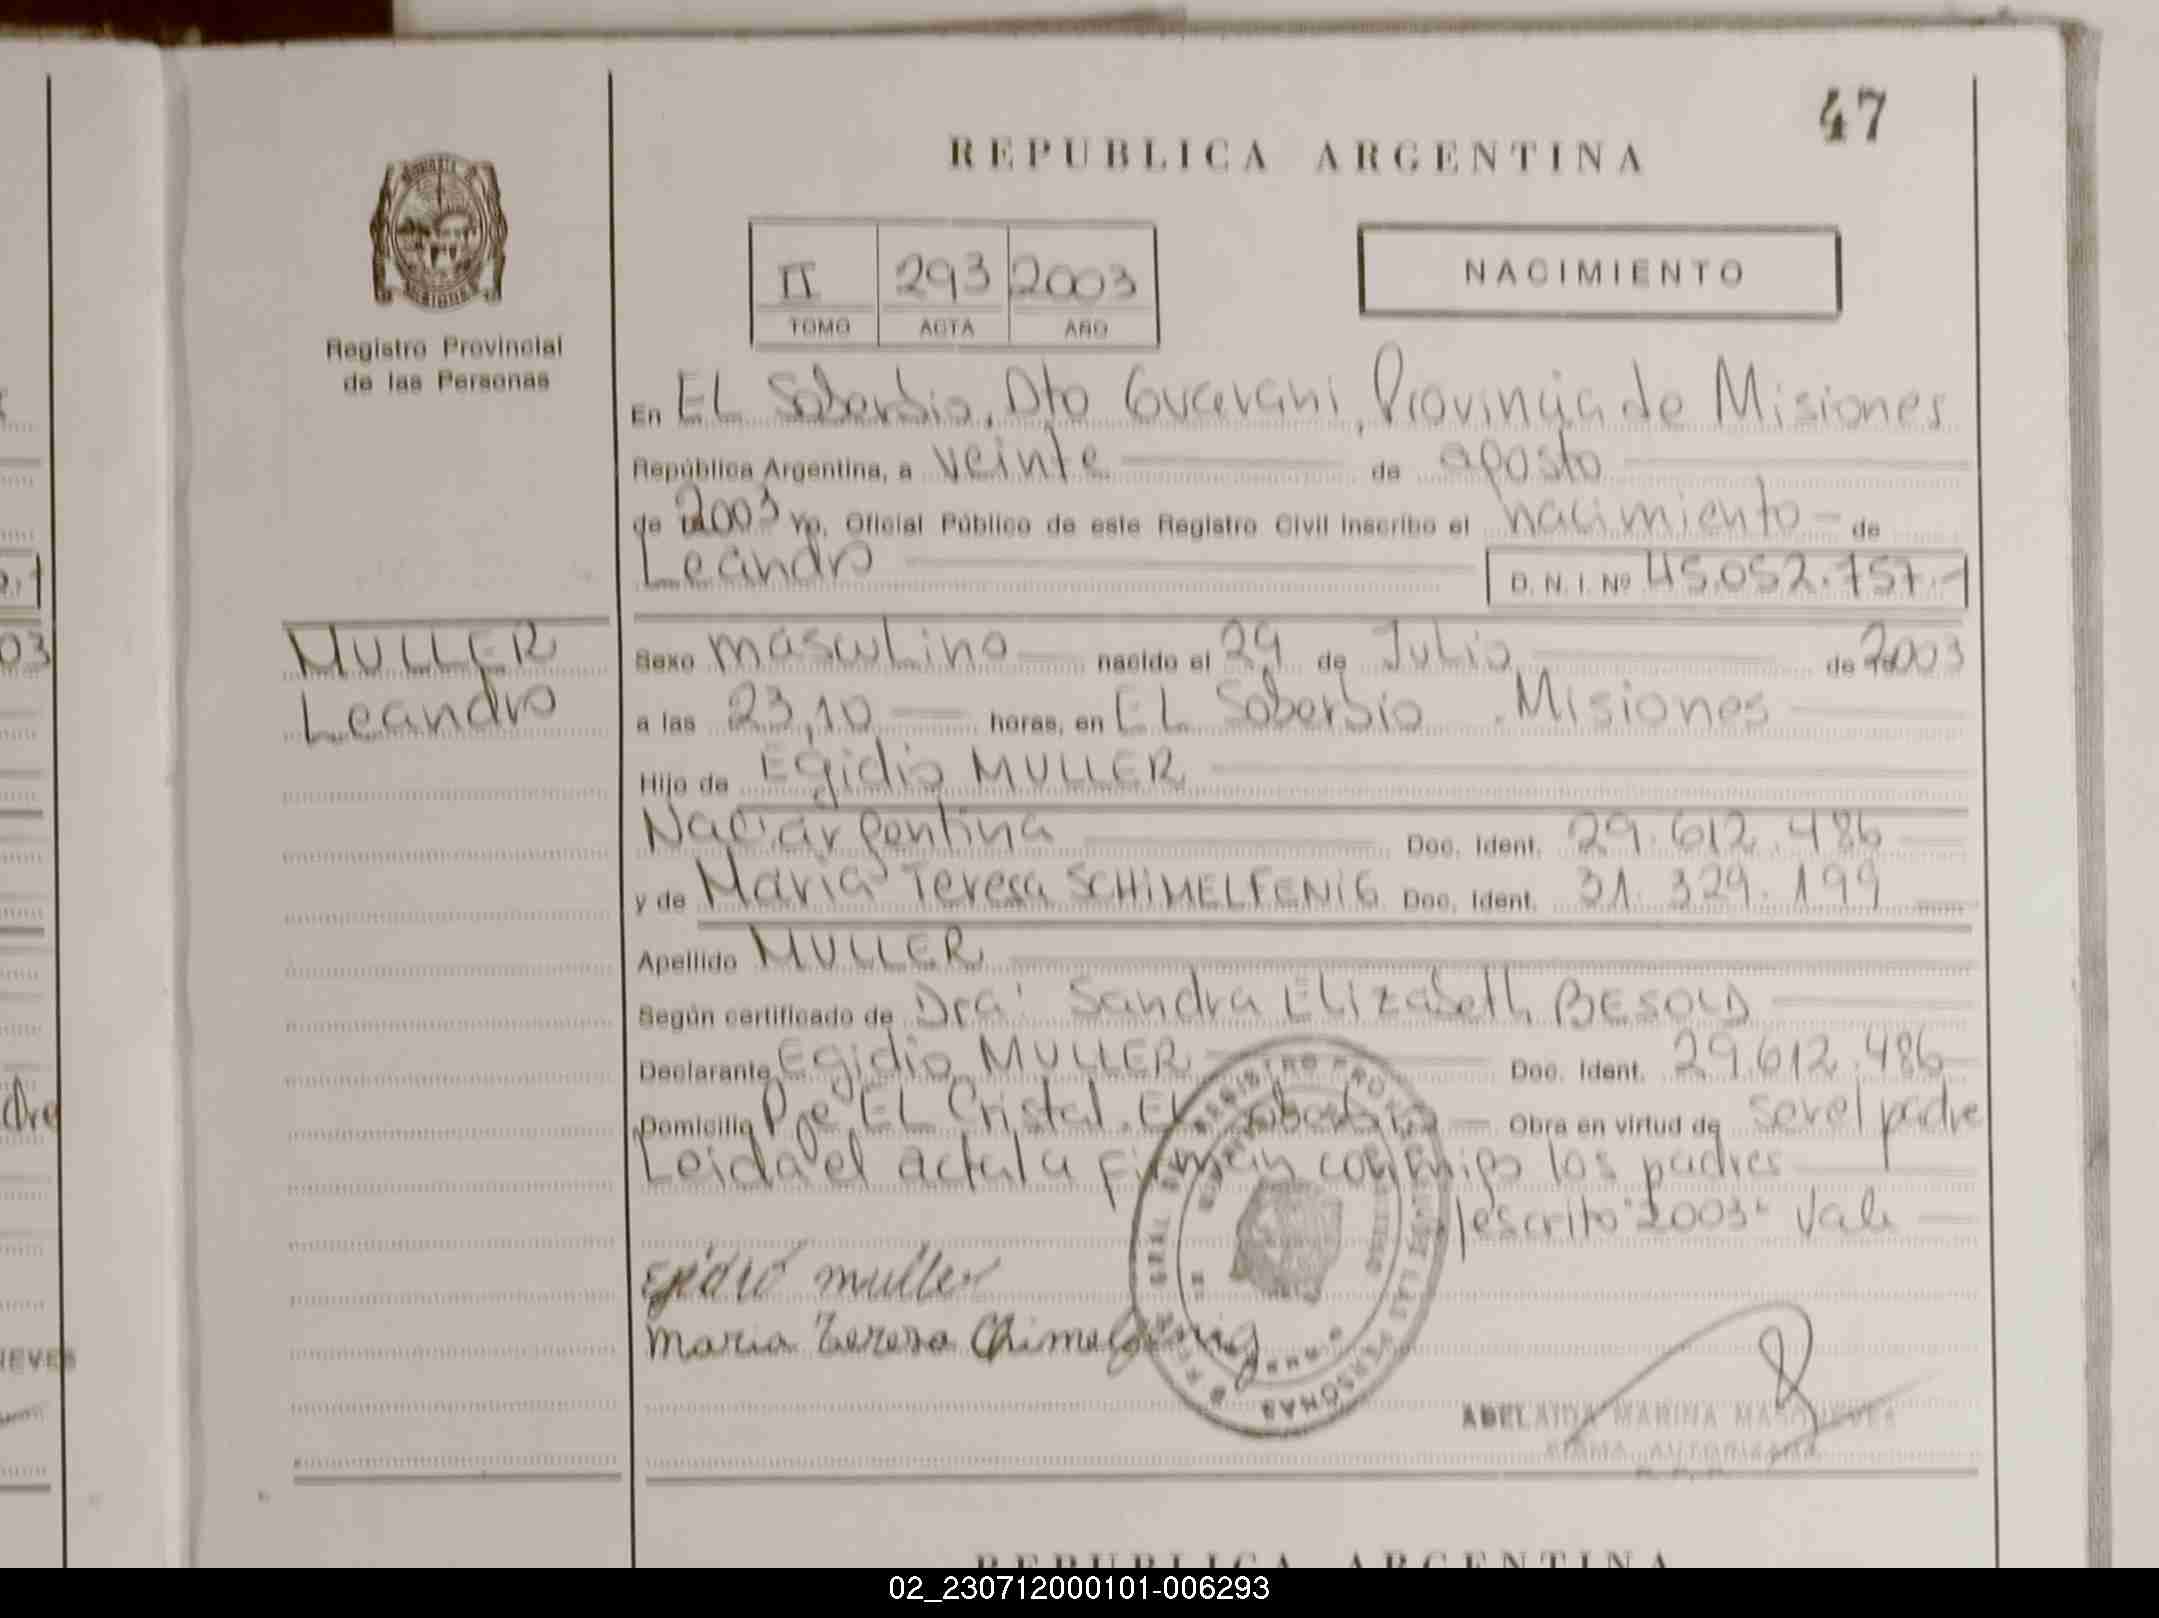 47
REPUBLICA ARGENTINA
II 293 2003
TOMO ACTA AÑO
NACIMIENTO
Registro Provincial
de las Personas
En EL Soberbio, Dto Guarani, Provincia de Misiones
República Argentina, a veinte de agosto
de 2003 Yo, Oficial Público de este Registro Civil inscribo el nacimiento de
Leandro
D. N. I. Nº 45.052.757.-
MULLER
Leandro
Sexo masculino nacido el 29 de Julio de 2003
a las 23,10 horas, en EL Soberbio . Misiones
Hijo de Egidio MULLER
Nac. argentina Doc. Ident. 29.612.486
y de Maria Teresa SCHIMELFENIG Doc. Ident. 31.329.199
Apellido MULLER
Según certificado de Dra: Sandra Elizabeth BESOLD
Declarante Egidio MULLER Doc. Ident. 29.612.486
Domicilio Pje EL Cristal. EL Soberbio Obra en virtud de ser el padre
Leida el acta la firman conmigo los padres
/escrito "2003" Vale
Egidio muller
maria tereza Chimelfenig
REGISTRO PROVINCIAL DE LAS PERSONAS
ADELAIDA MARINA MASONEVES
FIRMA AUTORIZADA
REPUBLICA ARGENTINA
02_230712000101-006293